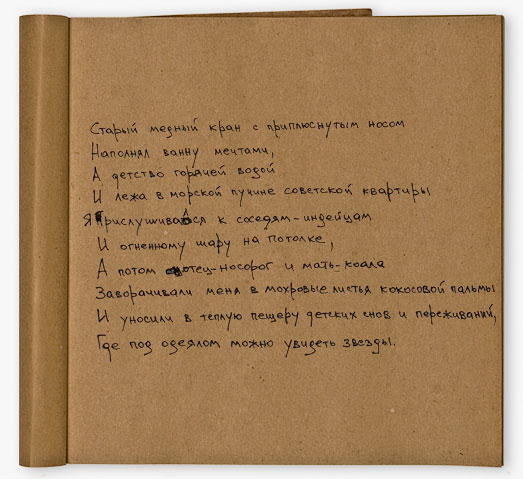 Старый медный кран с приплюснутым носом
Наполнял ванну мечтами,
А детство горячей водой
И лежа в морской пучине советской квартиры
Я прислушивался к соседям-индейцам
И огненному шару на потолке,
А потом отец-носорог и мать-коала
Заворачивали меня в мохровые листья кокосовой пальмы
И уносили в теплую пещеру детских снов и переживаний,
Где под одеялом можно увидеть звезды.